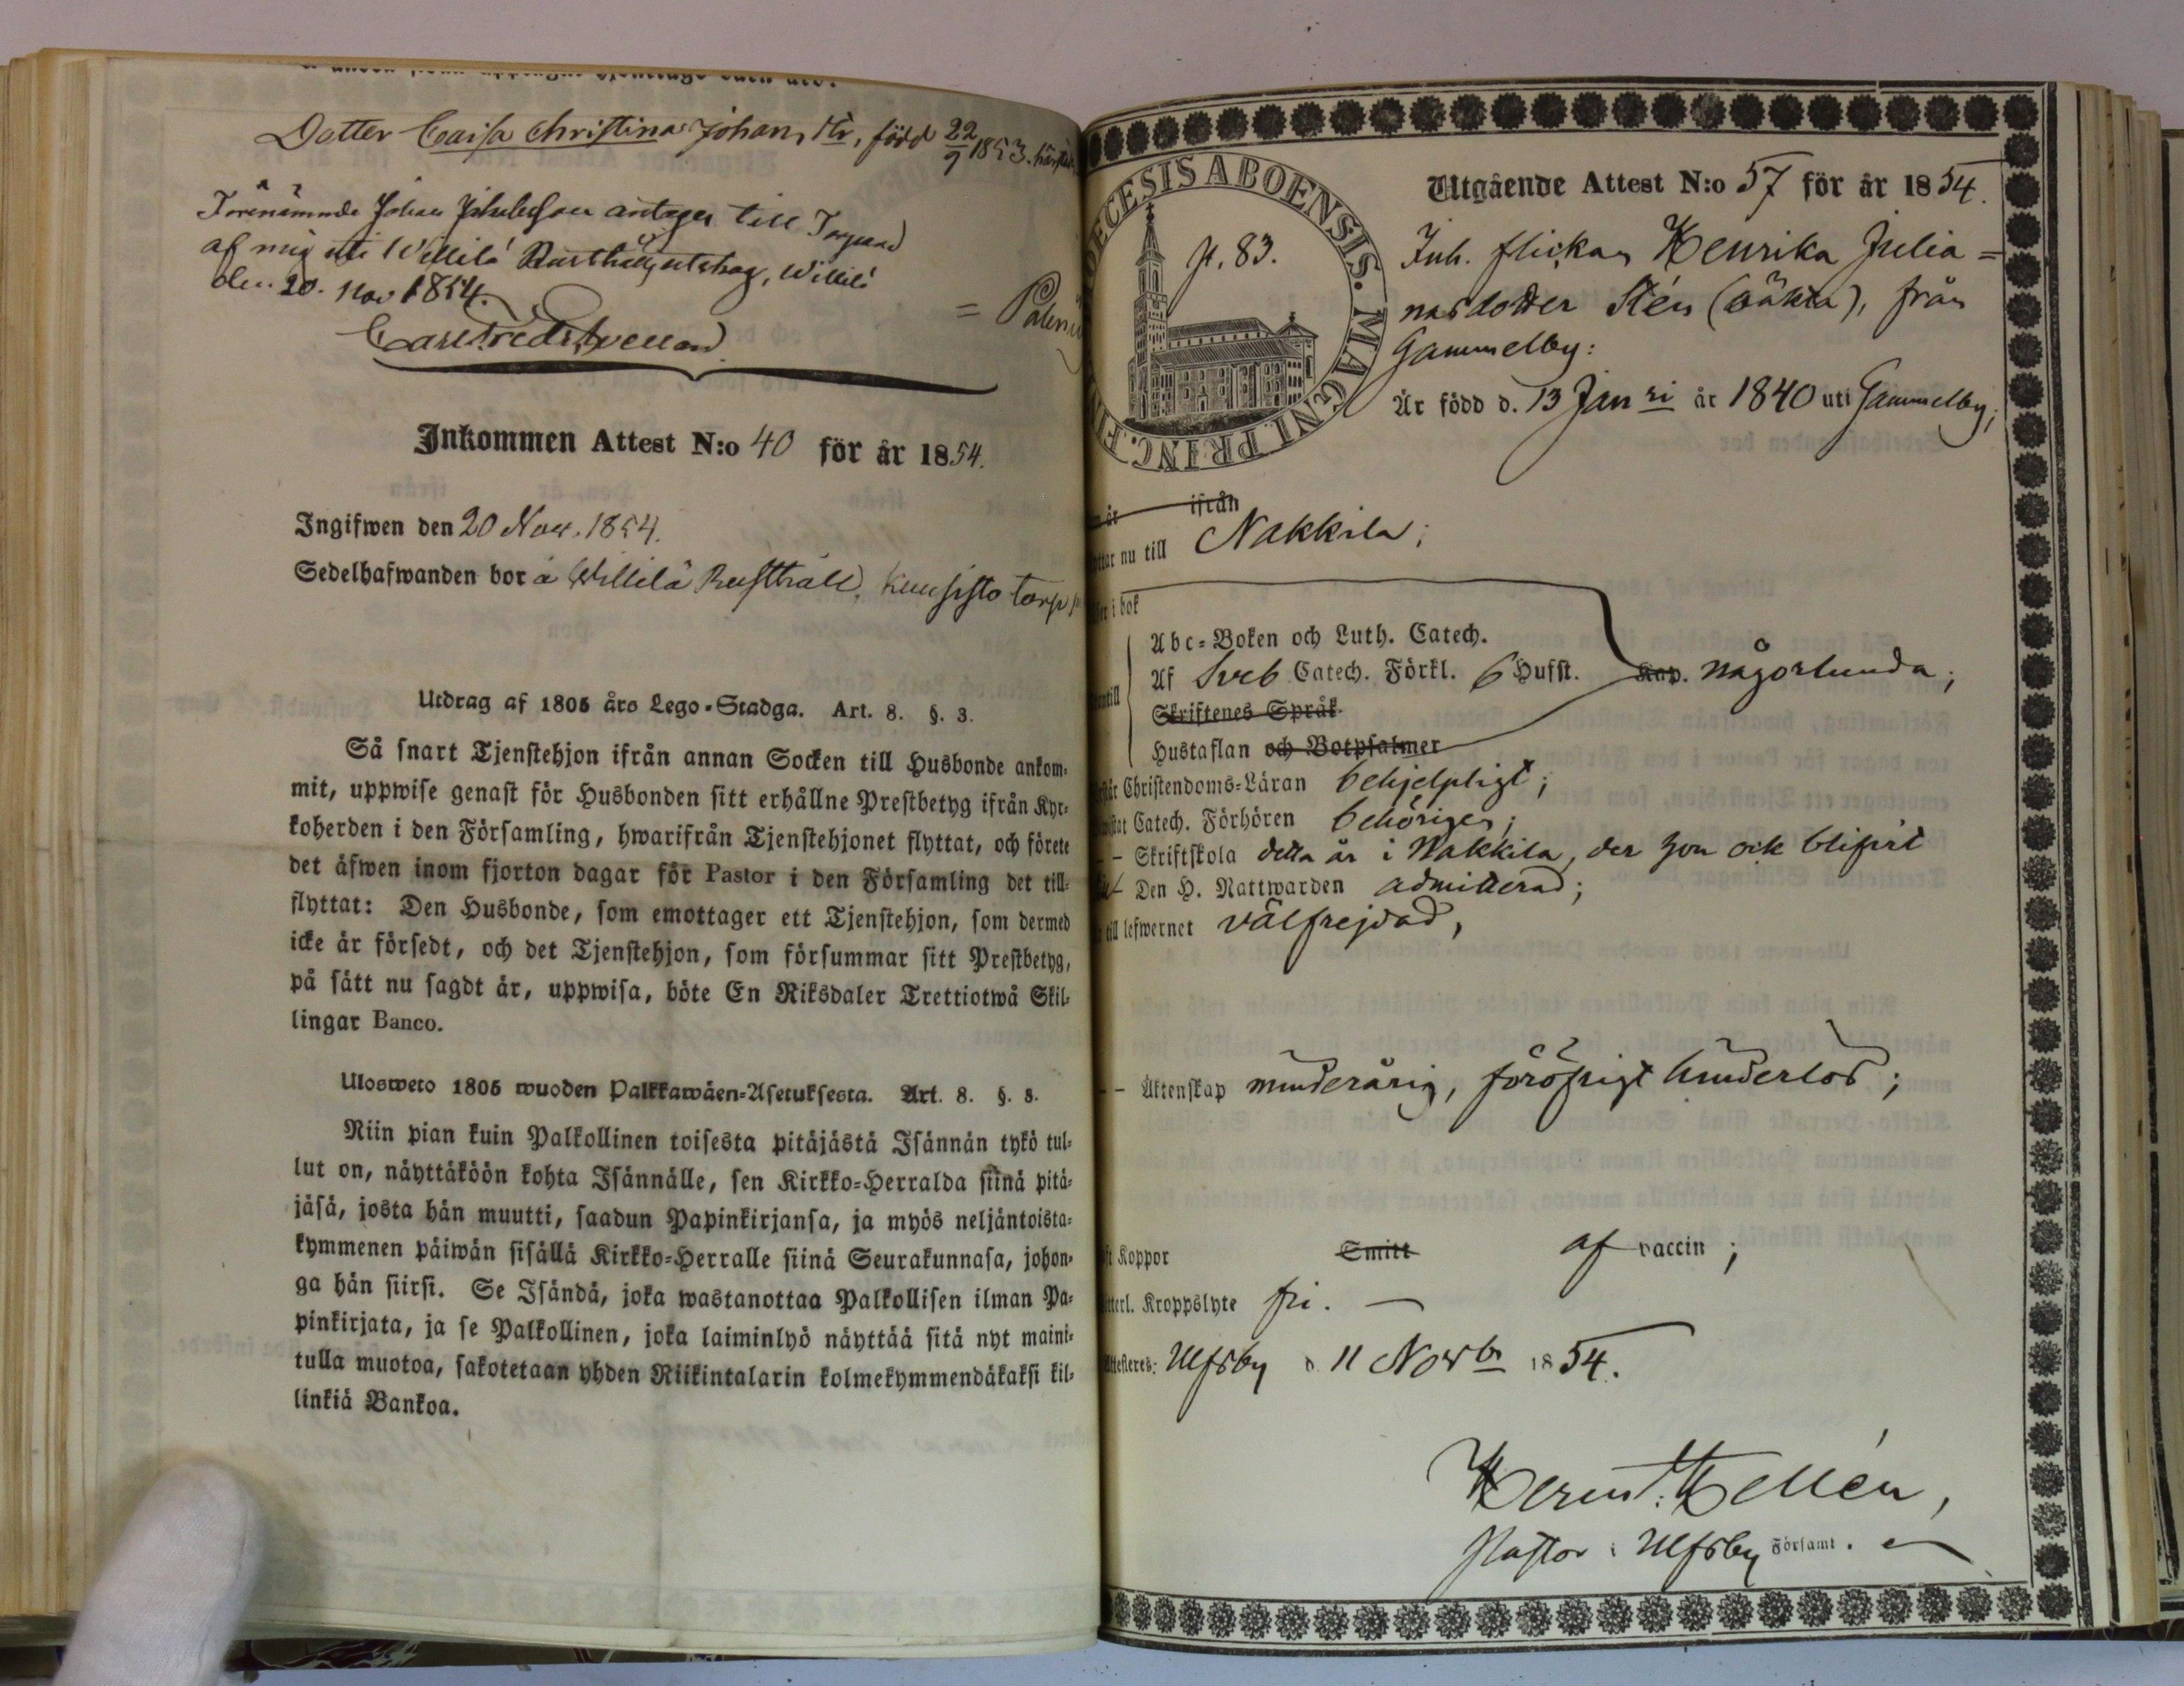 Dotter Caisa Christina Johans dr, född 22/9 1853.
Förenämnde Johan antages till Torpare
af mig uti Willilä Rusthåll, Willilä
den 20. Nov 1854.
Carl Fredr.
Inkommen Attest N:o 40 för år 1854.
Ingifwen den 20 Nov. 1854.
Sedelhafwanden bor å Willilä Rusthåll, Kuusisto torp
Utdrag af 1805 års Lego-Stadga. Art. 8. §. 3.
Så snart Tjenstehjon ifrån annan Socken till Husbonde ankom-
mit, uppwise genast för Husbonden sitt erhållne Prestbetyg ifrån Kyr-
koherden i den Församling, hwarifrån Tjenstehjonet flyttat, och förete
det äfwen inom fjorton dagar för Pastor i den Församling det till-
flyttat: Den Husbonde, som emottager ett Tjenstehjon, som dermed
icke är försedt, och det Tjenstehjon, som försummar sitt Prestbetyg,
på sätt nu sagdt är, uppwisa, böte En Riksdaler Trettiotwå Skil-
lingar Banco.
Ulosweto 1805 wuoden Palkkawäen-Asetuksesta. Art. 8. §. 3.
Niin pian kuin Palkollinen toisesta pitäjästä Isännän tykö tul-
lut on, näyttäköön kohta Isännälle, sen Kirkko-Herralda siinä pitä-
jäsä, josta hän muutti, saadun Papinkirjansa, ja myös neljäntoista-
kymmenen päiwän sisällä Kirkko-Herralle siinä Seurakunnasa, johon-
ga hän siirsi. Se Isändä, joka wastanottaa Palkollisen ilman Pa-
pinkirjata, ja se Palkollinen, joka laiminlyö näyttää sitä nyt maini-
tulla muotoa, sakotetaan yhden Riikintalarin kolmekymmendäkaksi kil-
linkiä Bankoa.
DIOECESIS ABOENSIS. MAGNI PRINC. FINL
p. 83.
Utgående Attest N:o 57 för år 1854.
Inh. flickan Henrika Julia-
nasdotter Stén (oäkta), från
Gammelby:
Är född d. 13 Jan ri år 1840 uti Gammelby;
ifrån
nu till Nakkila;
i bok
Abc-Boken och Luth. Catech.
Af Sveb Catech. Förkl. 6 Hufst. Kap. någorlunda;
Skriftenes Språk.
Hustaflan och Botpsalmer
Christendoms-Läran behjelpligt;
Catech. Förhören behörigen;
- - Skriftskola detta år i Nakkila, der hon ock blifvit
Den H. Nattwarden admitterad;
till lefwernet välfrejdad,
- - Äktenskap minderårig, föröfrigt hinderlös;
Koppor Smitt af vaccin;
Kroppslyte fri. —
Ulfsby d. 11 Nov br 1854.
Hernr. Hellén,
Pastor i Ulfsby Församl.